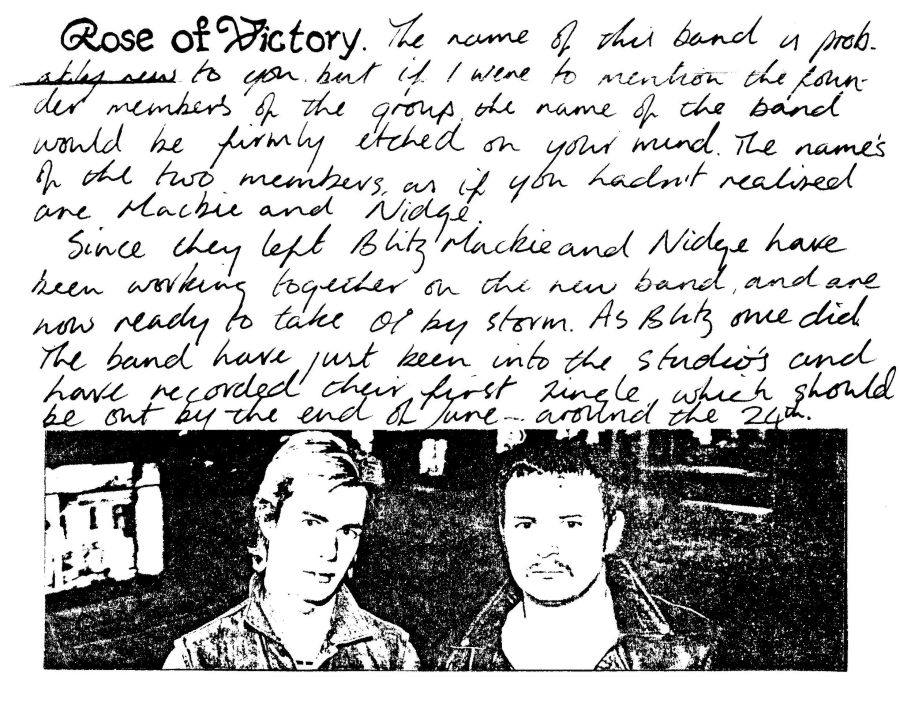 Rose of Victory. The name of this band is prob-
ably new to you but if I were to mention the foun-
der members of the group, the name of the band
would be firmly etched on your mind. The name's
of the two members, as if you hadn't realised
are Mackie and Nidge.
Since they left Blitz Mackie and Nidge have
been working together on the new band, and are
now ready to take Oi by storm. As Blitz once did.
The band have just been into the studio's and
have recorded their first single, which should
be out by the end of June - around the 24th.